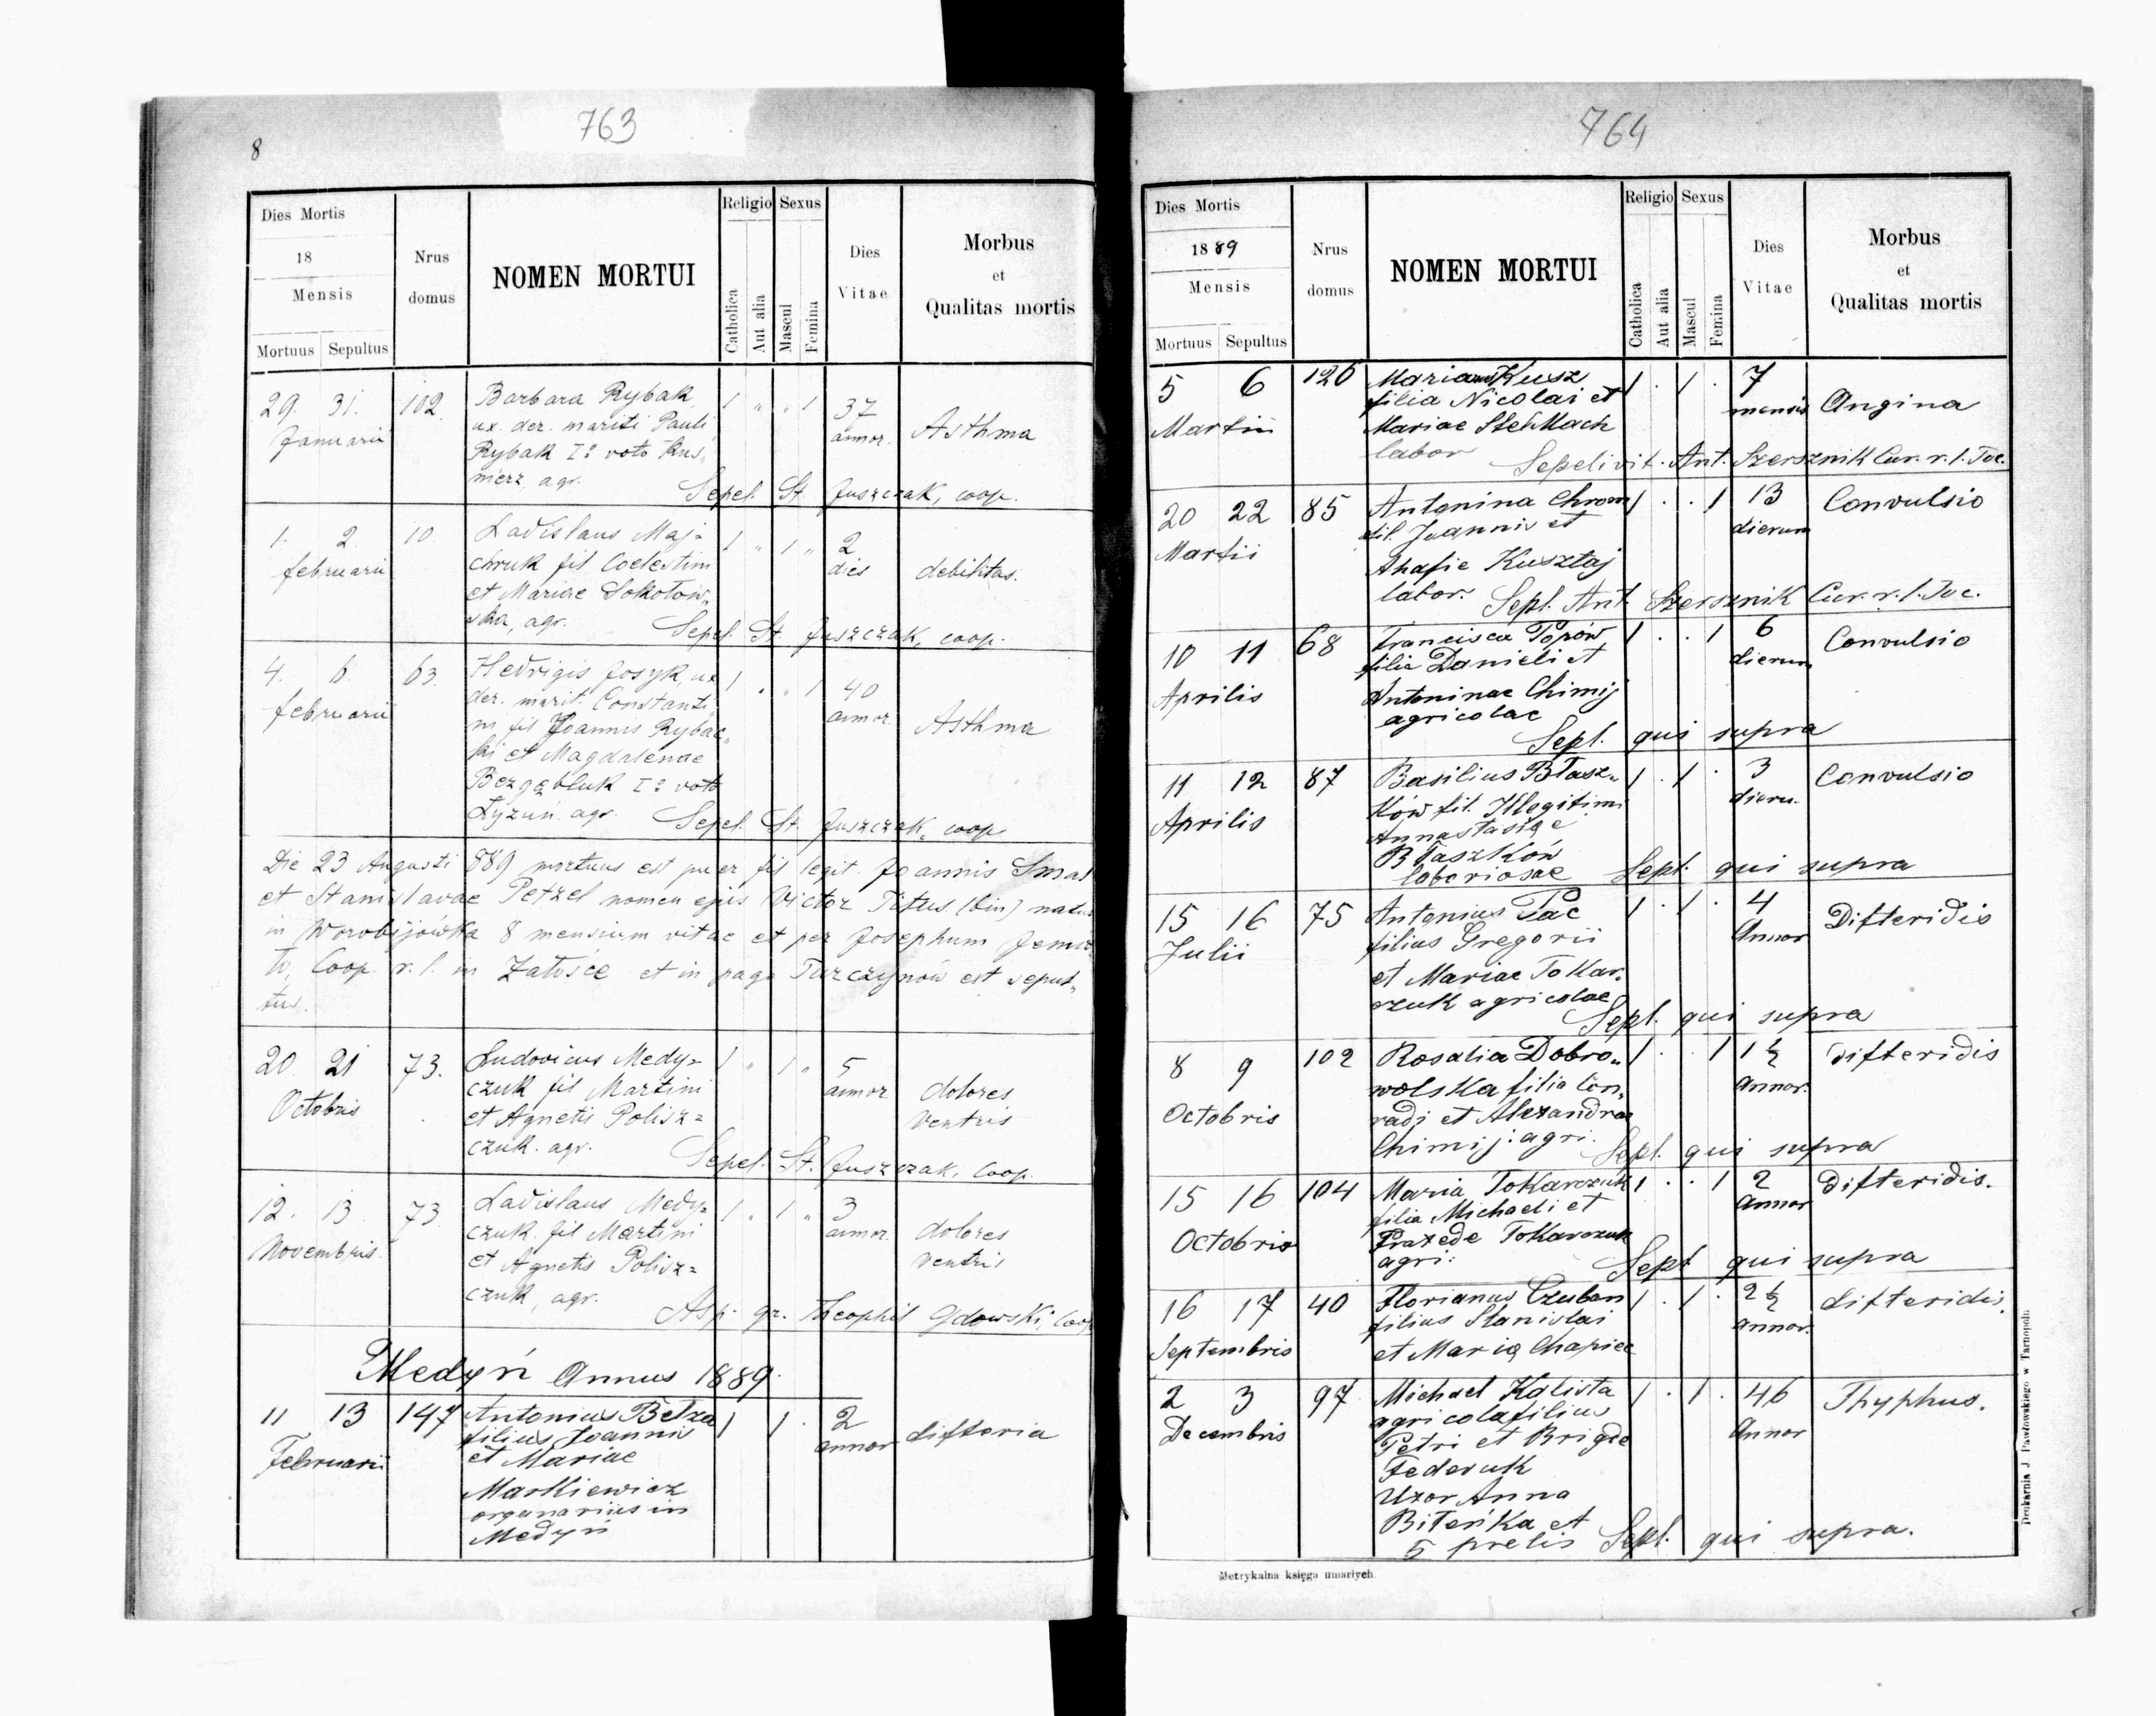 763
8
Dies Mortis
18
Mensis
Mortuus Sepultus
Nrus
domus
NOMEN MORTUI
Religio
Catholica
Aut alia
Sexus
Mascul
Femina
Dies
Vitae
Morbus
et
Qualitas mortis
29. 31. 102. Barbara Rybak, 1 " " 1 37
Januarii ux. der. mariti Pauli annor. Asthma
Rybak I: voto Kuś,
nierz, agr.
Sepel. St. Juszczak, coop.
1. 2. 10. Ladislaus Maj- 1 " 1 " 2
februarii chruk fil Coelestini dies debilitas.
et Mariae Sokołow,
ska, agr.
Sepel. St. Juszczak, coop.
4. 6. 63. Hedvigis Josyk, ux 1 " " 1 40
februarii der. marit. Constanti annor. Asthma
ni fil Joannis Rybac,
ki et Magdalenae
Bezgębluk I: voto
Łyzuń. agr.
Sepel. St. Juszczak, coop
Die 23 Augusti 889 mortuus est puer fil legit. Joannis Smal
et Stanislavae Petzel nomen ejus Victor Titus (bin) natus
in Worobijówka 8 mensium vitae et per Josephum
to, Coop. r. l. in Załośce et in pago Turczynów est sepul,
tus.
20. 21 73. Ludovicus Medy= 1 " 1 " 5
Octobris czuk fil Martini annor. dolores
et Agnetis Polisz= ventris
czuk. agr.
Sepel. St. Juszczak, Coop.
12. 13. 73. Ladislaus Medy= 1 " 1 " 3
Novembris. czuk. fil Martini annor. dolores
et Agnetis Polisz= ventris
czuk, agr.
Asp. gr. Theophil Gdowski, Coop
Medyń Annus 1889.
11 13 147 Antonius Betza 1 1 . 2
Februarii filius Joannis annor difteria
et Mariae
Markiewicz
organarius in
Medyń
764
Dies Mortis
1889
Mensis
Mortuus Sepultus
Nrus
domus
NOMEN MORTUI
Religio
Catholica
Aut alia
Sexus
Mascul
Femina
Dies
Vitae
Morbus
et
Qualitas mortis
5 6 126 Kusz 1 . 1 . 7
Martii filia Nicolai et mensis Angina
Mariae StełMach
labor
Sepelivit. Ant. Szersznik Cur. r. l. Toc.
20 22 85 Antonina Chrom 1 . . 1 13 Convulsio
Martii fil. Joannis et dierum
Ahafie Kusztaj
labor.
Sepl. Ant. Szersznik Cur. r. l. Toc.
10 11 68 Francisca Popów 1 . . 1 6 Convulsio
Aprilis filia Danieli et dierum
Antoninae Chimij
agricolae
Sepl. qui supra
11 12 87 Basilius Błasz„ 1 . 1 . 3 Convulsio
Aprilis ków fil. Illegitimi dieru.
Annastasiae
Błaszków
laboriosae
Sepl. qui supra
15 16 75 Antonius Pac 1 . 1 . 4 Difteridis
Julii filius Gregorii Annor
et Mariae Tokar,
czuk agricolae
Sepl. qui supra
8 9 102 Rosalia Dobro„ 1 . . 1 1½ Difteridis
Octobris wolska filia Con, annor.
radi et Alexandrae
Chimij: agri.
Sepl. qui supra
15 16 104 Maria Tokarczuk 1 . . 1 2 Difteridis.
Octobris filia Michaeli et Annor
Praxede Tokarczuk
agri:
Sepl qui supra
16 17 40 Florianus Czuban 1 . 1 . 2½ difteridis.
Septembris filius Stanislai annor.
et Marię Chapiec
2 3 97 Michael Kalista 1 . 1 . 46 Thyphus.
Decembris agricola filius Annor
Petri et Brigde
Federuk
Uxor Anna
Biteńka et
5 prelis
Sepl. qui supra.
Metrykalna księga umarłych.
Drukarnia J. Pawłowskiego w Tarnopolu